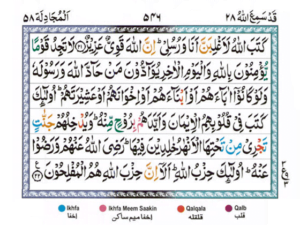 قَدْ سَمِعَ اللهُ ٢٨ ٥٤٦ اَلْمُجَادِلَة ٥٨
كَتَبَ اللّٰهُ لَاَغْلِبَنَّ اَنَا وَرُسُلِىْ ؕ اِنَّ اللّٰهَ قَوِىٌّ عَزِيْزٌ ﴿۲۱﴾ لَا تَجِدُ قَوْمًا
يُّؤْمِنُوْنَ بِاللّٰهِ وَالْيَوْمِ الْاٰخِرِ يُوَآدُّوْنَ مَنْ حَآدَّ اللّٰهَ وَرَسُوْلَهٗ
وَلَوْ كَانُوْۤا اٰبَآءَهُمْ اَوْ اَبْنَآءَهُمْ اَوْ اِخْوَانَهُمْ اَوْ عَشِيْرَتَهُمْ ؕ اُولٰٓئِكَ
كَتَبَ فِىْ قُلُوْبِهِمُ الْاِيْمَانَ وَاَيَّدَهُمْ بِرُوْحٍ مِّنْهُ ؕ وَيُدْخِلُهُمْ جَنّٰتٍ
تَجْرِىْ مِنْ تَحْتِهَا الْاَنْهٰرُ خٰلِدِيْنَ فِيْهَا ؕ رَضِىَ اللّٰهُ عَنْهُمْ وَرَضُوْا
عَنْهُ ؕ اُولٰٓئِكَ حِزْبُ اللّٰهِ ؕ اَلَاۤ اِنَّ حِزْبَ اللّٰهِ هُمُ الْمُفْلِحُوْنَ ﴿۲۲﴾
Ikhfa Ikhfa Meem Saakin Qalqala Qalb
اخفا اخفا میم ساکن قلقله قلب